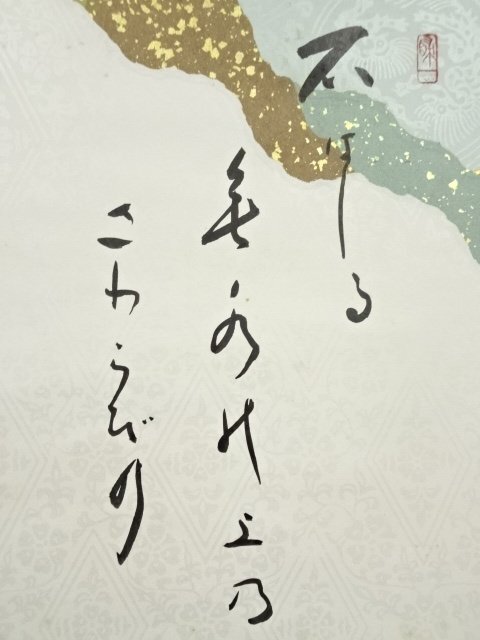 石はしる
垂水の上乃
さわらびの